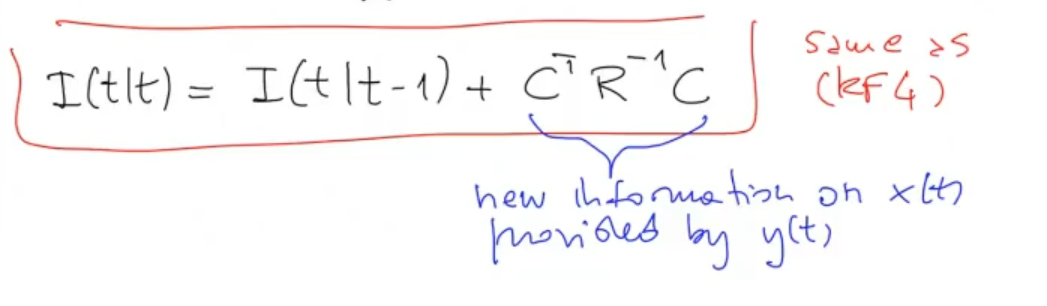 I(t|t) = I(t|t-1) + CᵀR⁻¹C
same as
(KF4)
new information on x(t)
provided by y(t)